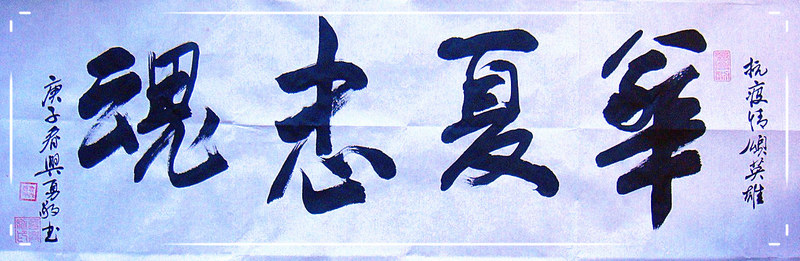 抗疫情頌英雄
華夏忠魂
庚子春興勇敬书